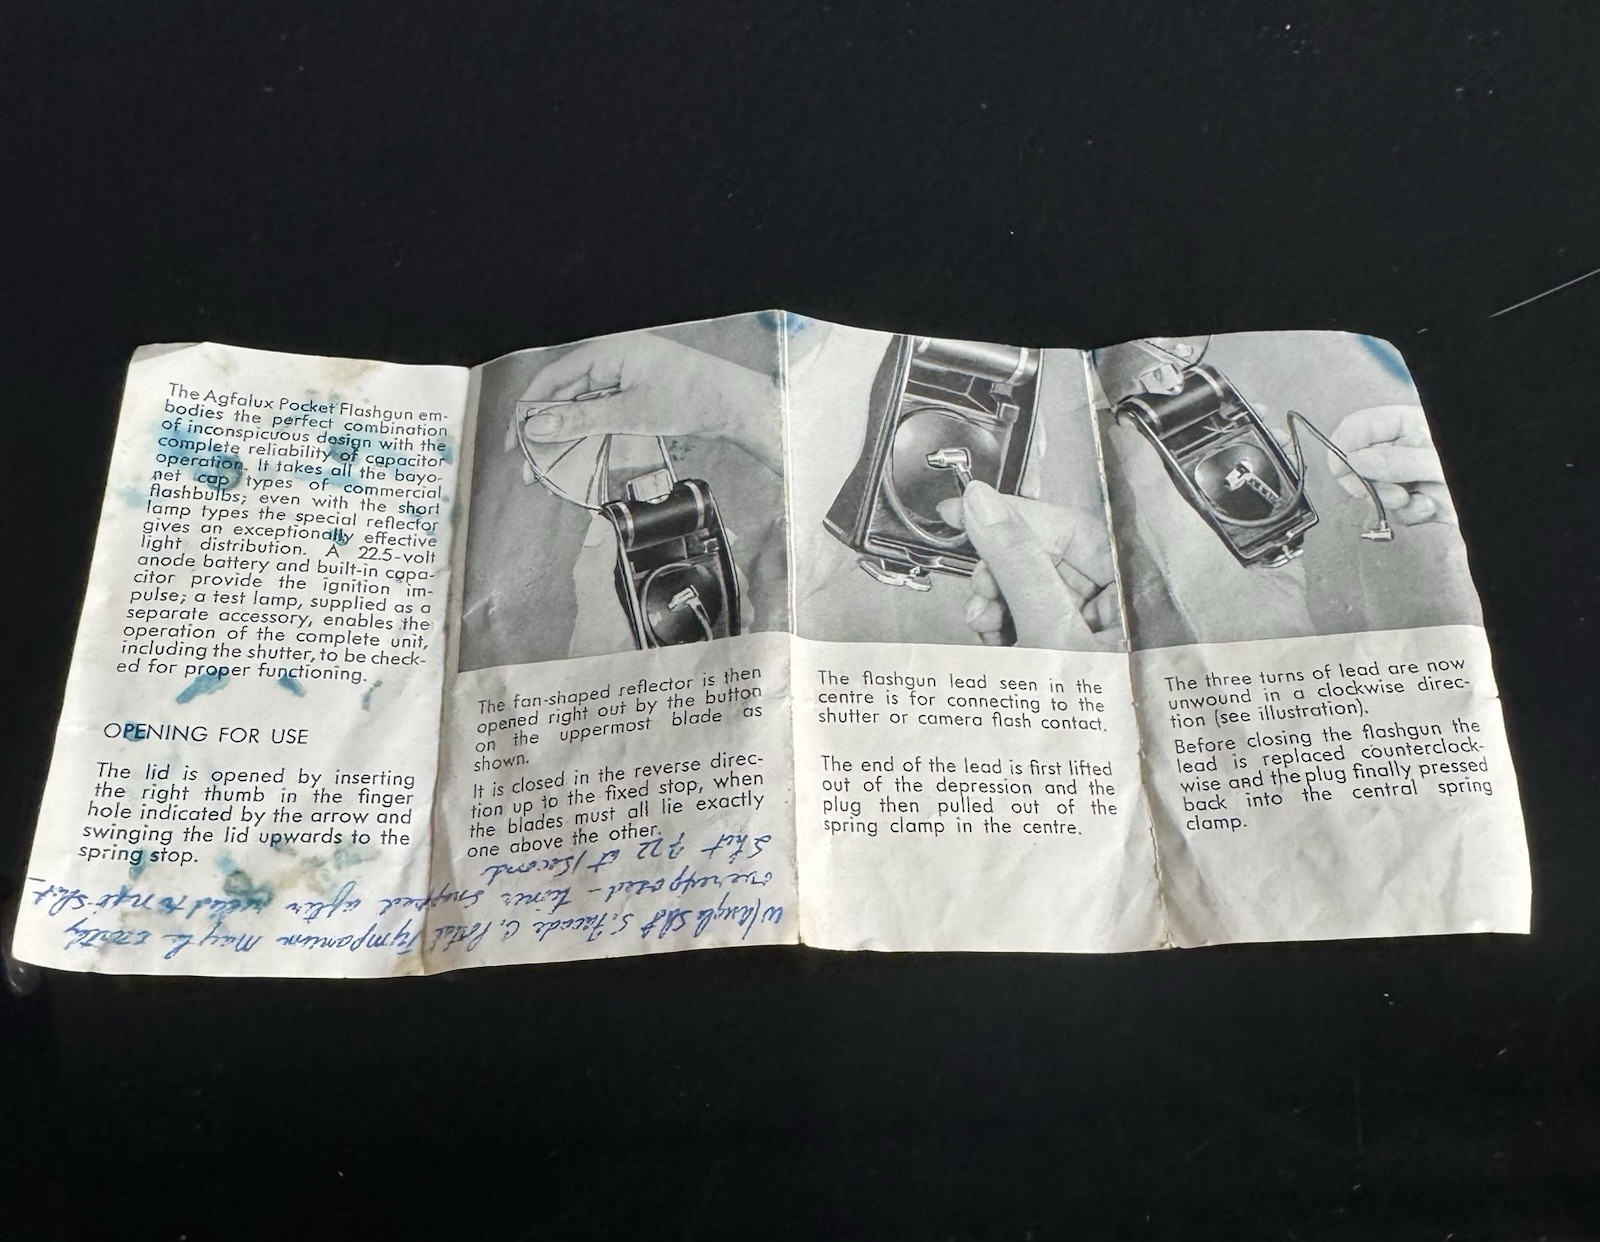 The Agfalux Pocket Flashgun em-
bodies the perfect combination
of inconspicuous design with the
complete reliability of capacitor
operation. It takes all the bayo-
net cap types of commercial
flashbulbs; even with the short
lamp types the special reflector
gives an exceptionally effective
light distribution. A 22.5-volt
anode battery and built-in capa-
citor provide the ignition im-
pulse; a test lamp, supplied as a
separate accessory, enables the
operation of the complete unit,
including the shutter, to be check-
ed for proper functioning.
OPENING FOR USE
The lid is opened by inserting
the right thumb in the finger
hole indicated by the arrow and
swinging the lid upwards to the
spring stop.
The fan-shaped reflector is then
opened right out by the button
on the uppermost blade as
shown.
It is closed in the reverse direc-
tion up to the fixed stop, when
the blades must all lie exactly
one above the other.
The flashgun lead seen in the
centre is for connecting to the
shutter or camera flash contact.
The end of the lead is first lifted
out of the depression and the
plug then pulled out of the
spring clamp in the centre.
The three turns of lead are now
unwound in a clockwise direc-
tion (see illustration).
Before closing the flashgun the
lead is replaced counterclock-
wise and the plug finally pressed
back into the central spring
clamp.
S. Facade C. Portal Tympanum May be
overexposed - timer snapped after
Shot F22 at 1 second